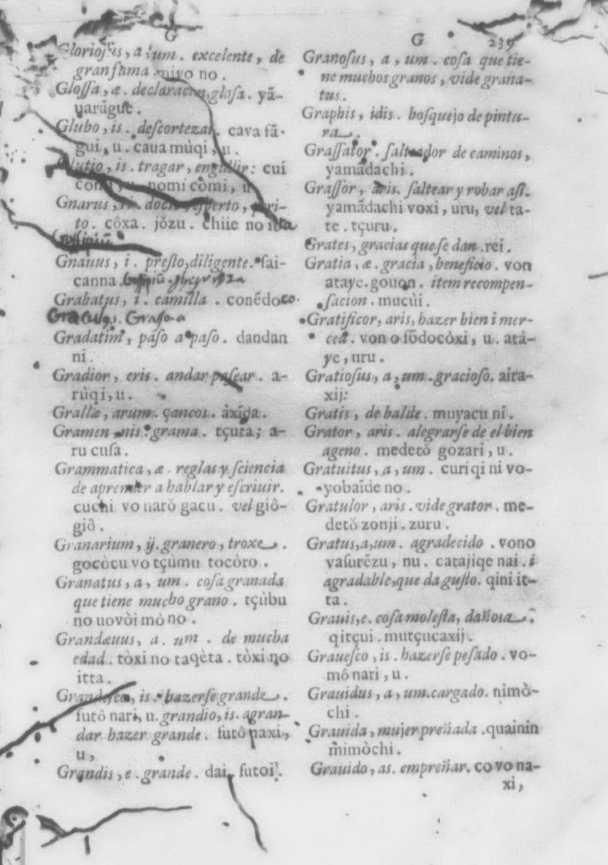 G
Gloriosus, a, um. excelente, de
gran fama. no.
Glossa, æ. declaracion, glosa. yā-
uarāgue.
Glubo, is. descortezar. cava fā-
gui, u. caua muqi, u.
Glutio, is. tragar, engullir: cui
nomi còmi, u.
Gnarus,
to. còxa. jòzu. chiie no
Gnauus, i. presto, diligente. sai-
canna.
Grabatus, i. camilla. conédoco.
Gradatim, paso a paso. dandan
ni.
Gradior, eris. andar pasear. a-
rùqi, u.
Grallæ, arum. çancos. àxiда.
Gramen nis. grama. tçuta; a-
ru cusa.
Grammatica, æ. reglas y sciencia
de aprender a hablar y escriuir.
cuchi vo narǒ gacu. vel giŏ-
giŏ.
Granarium, ij. granero, troxe.
gocòcu vo tçumu tocòro.
Granatus, a, um. cosa granada
que tiene mucho grano. tçùbu
no uovòi mò no.
Grandæuus, a. um. de mucha
edad. tòxi no taqèta. tòxi no
itta.
Grandesco, is. hazerse grande.
futò nari, u. grandio, is. agran-
dar hazer grande. futò naxi,
u,
Grandis, e. grande. dai, futoi.
G 239
Granosus, a, um. cosa que tie-
ne muchos granos, vide grana-
tus.
Graphis, idis. bosquejo de pintu-
ra.
Grassator. salteador de caminos,
yamādachi.
Grassor, aris. saltear y robar assi.
yamādachi voxi, uru, vel ta-
te. tçuru.
Grates, gracias que se dan. rei.
Gratia, æ. gracia, beneficio. von
ataye. gouon. item recompen-
sacion. mucùi.
Gratificor, aris, hazer bien i mer-
ced. von o fŏdocòxi, u. atà-
ye, uru.
Gratiosus, a, um. gracioso. aira-
xij.
Gratis, de balde. muyacu ni.
Grator, aris. alegrarse de el bien
ageno. medetò gozari, u.
Gratuitus, a, um. curiqi ni vo-
yobaīde no.
Gratulor, aris. vide grator. me-
detŏ zonji. zuru.
Gratus, a, um. agradecido. vono
vasurēzu, nu. catajiqe nai. i
agradable, que da gusto. qini it-
ta.
Grauis, e. cosa molesta, dañosa.
qitçui. mutçucaxij.
Grauesco, is. hazerse pesado. vo-
mò nari, u.
Grauidus, a, um. cargado. nimò-
chi.
Grauida, mujer preñada. quainin
mimòchi.
Grauido, as. empreñar. co vo na-
xi,